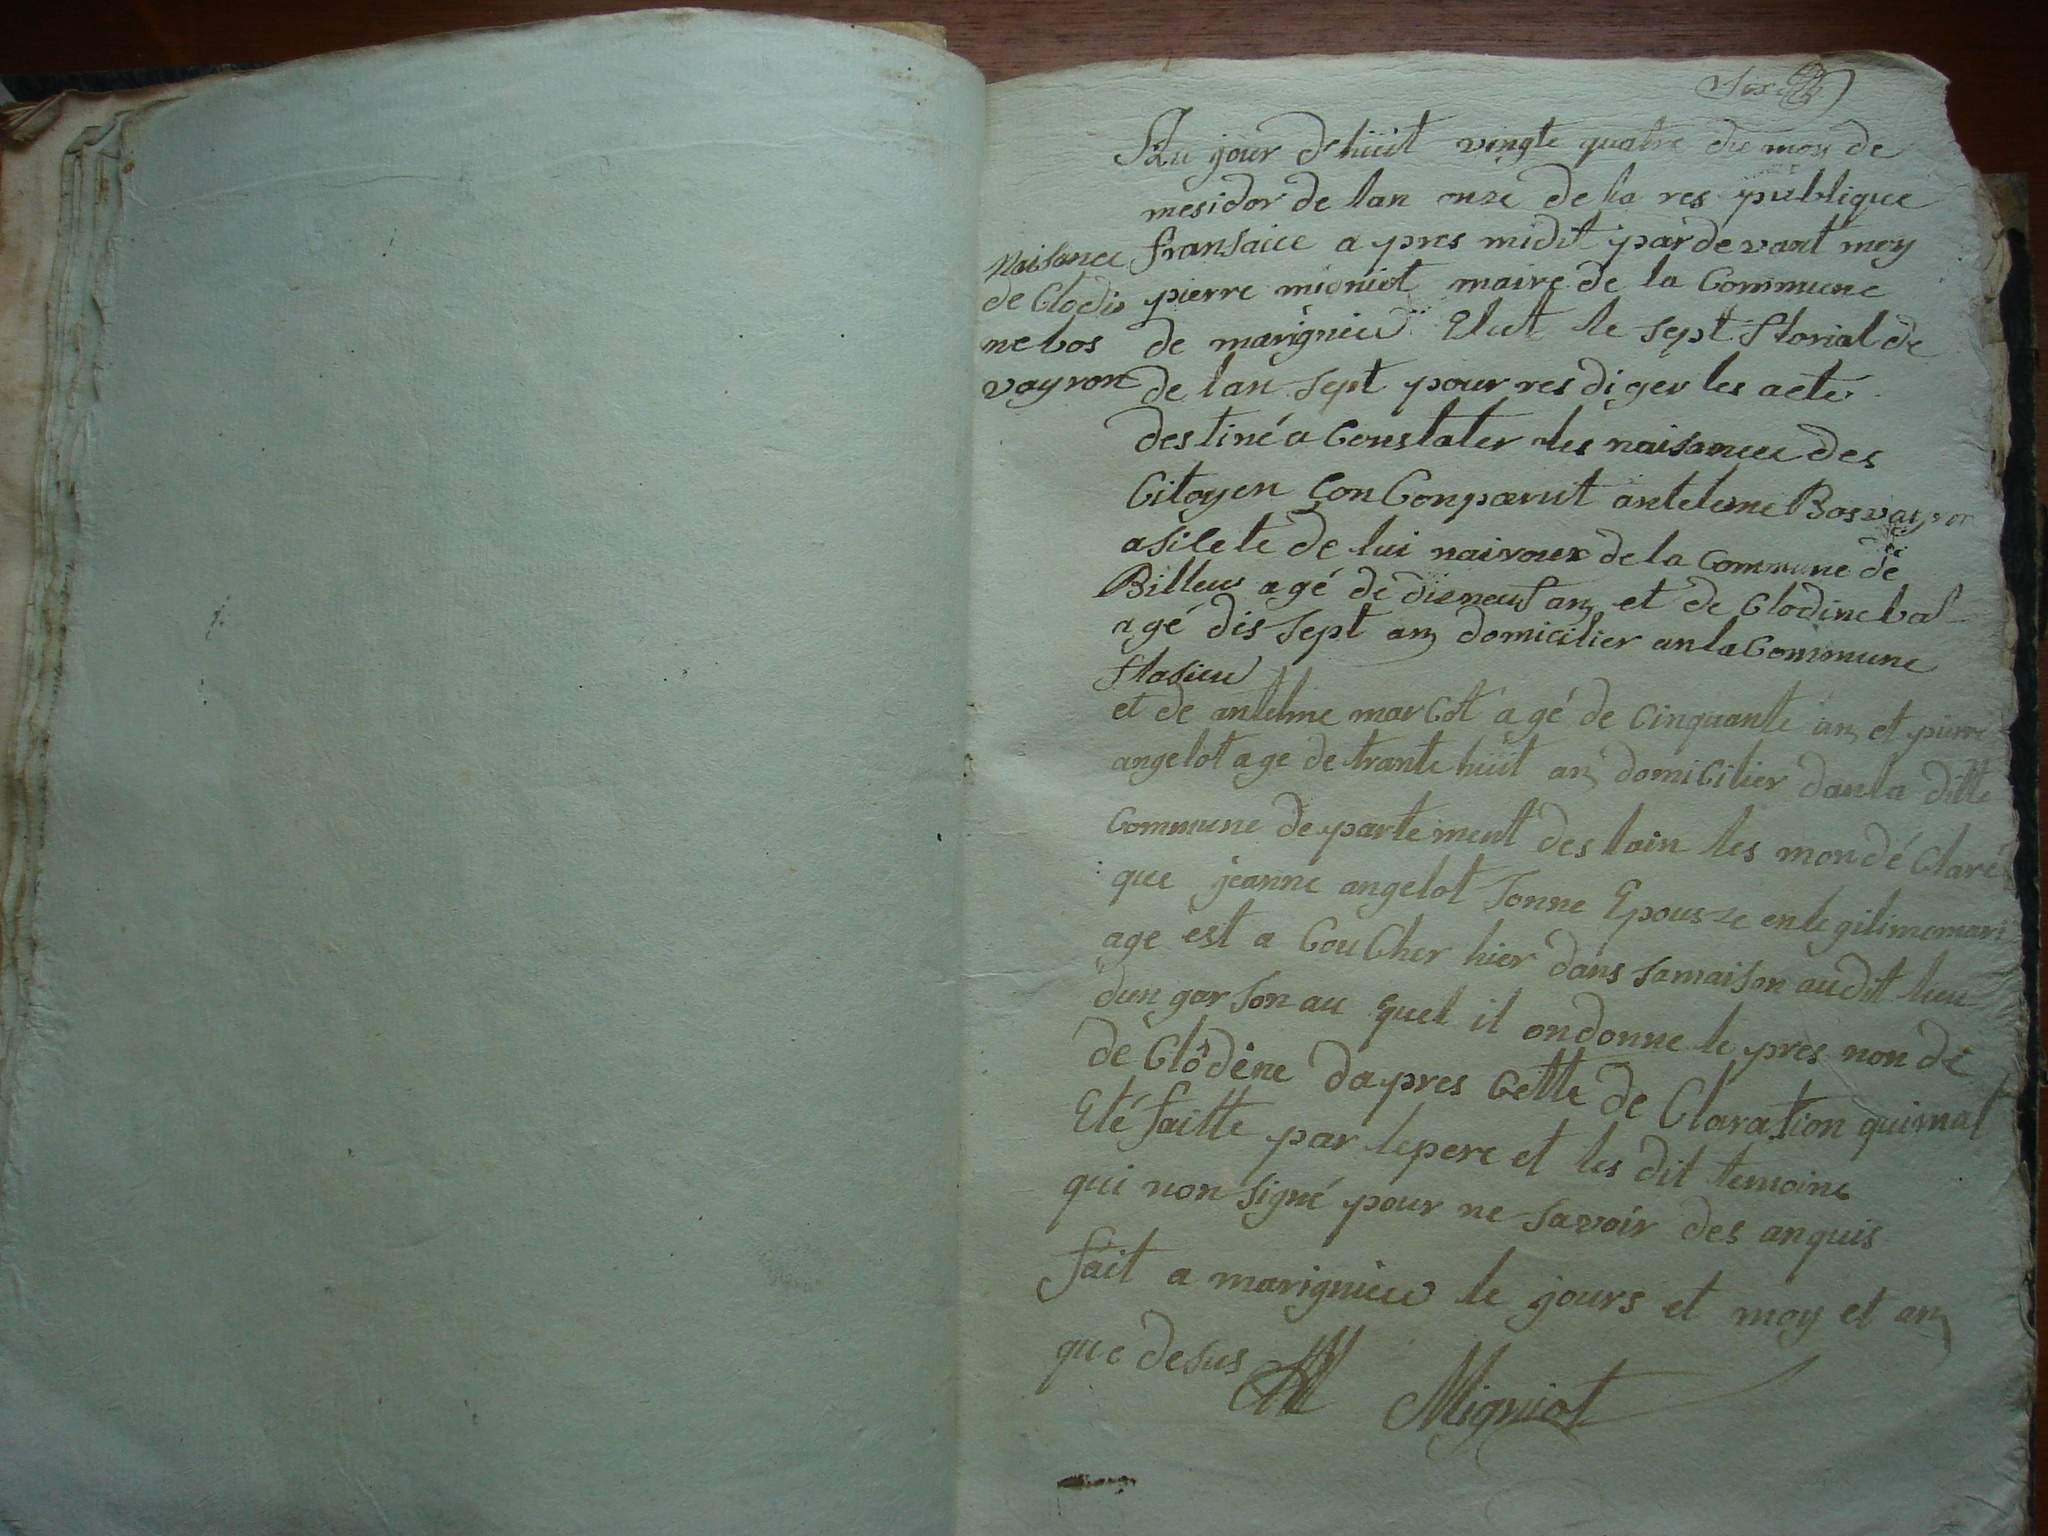 Six
Au jour dhuit vingte quatre du moy de
mesidor de lan onze de la res publique
Naisance
de Clodi
ne bos
vayron
fransaice a pres midit pardevant moy
pierre migniot maire de la Commune
de marignieu Elut le sept florial de
de lan sept pour res diger les acte
destiné a Constater les naisances des
Citoyen Con Conparut anteleme Bosvayron
asilete de lui nairoux de la Commune de
Billeu agé de dieneuf an et de Clodine bal
agé dis sept an domicilier an la Commune
flasieu
et de antelme marcot agé de Cinquante an et pierre
angelot age de trante huit an domicilier dan la ditte
Commune departement des lain les mon dé Claré
que jeanne angelot sonne Epouze en legitime mari
age est a Cou Cher hier dans samaison audit lieu
dun garson au quel il on donne le pres non de
de Clodine dapres Cette de Claration quimat
Eté faitte par le pere et les dit temoins
qui non signé pour ne savoir des anquis
fait a marignieu le jours et moy et an
que desus
Migniot